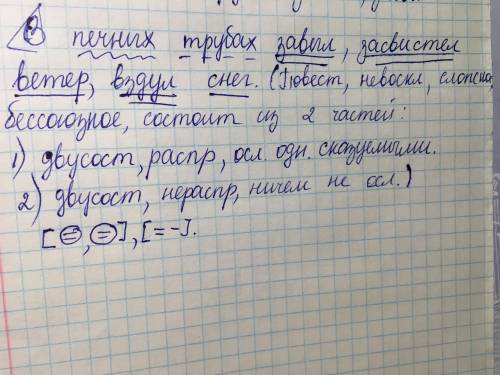 В печных трубах завыл, засвистел
ветер, вздул снег. (Повест, невоскл, сложное,
бессоюзное, состоит из 2 частей:
1) двусост, распр, осл. одн. сказуемыми.
2) двусост, нераспр, ничем не осл.)
[=, =], [= -].